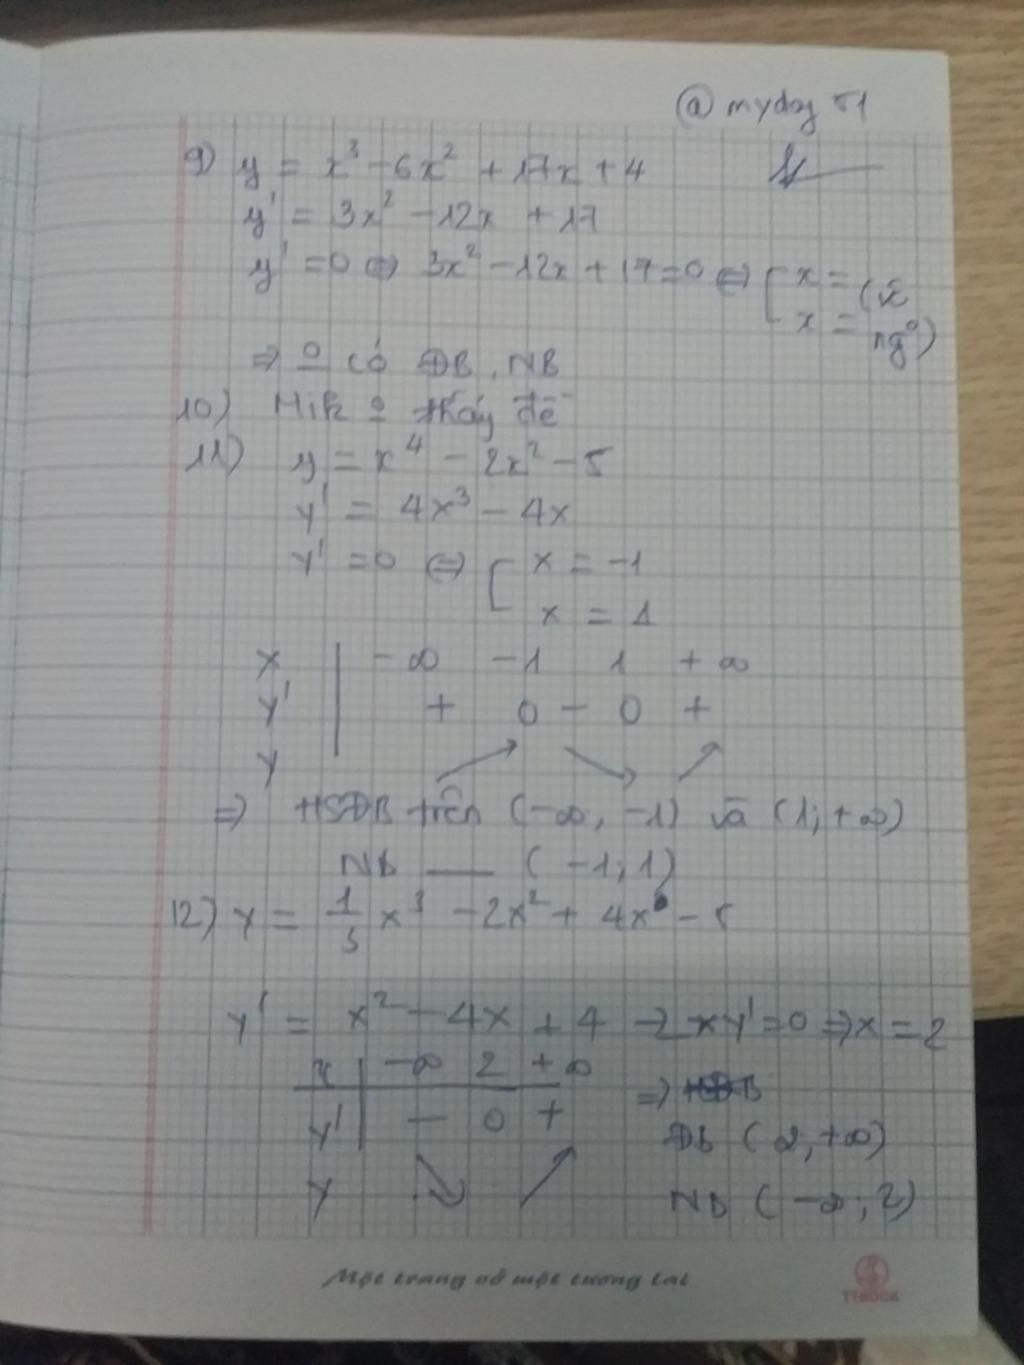 @ myday 51
9) y = x³ - 6x² + 17x + 4
y' = 3x² - 12x + 17
y' = 0 ⇔ 3x² - 12x + 17 = 0 ⇔ [ x =
x = (vô ng°)
⇒ o có ĐB, NB
10) Mik o thấy đề
11) y = x⁴ - 2x² - 5
y' = 4x³ - 4x
y' = 0 ⇔ [ x = -1
x = 1
x | -∞ -1 1 +∞
y' | + 0 - 0 +
y ↗ ↘ ↗
⇒ HSĐB trên (-∞, -1) và (1; +∞)
NB ___ (-1; 1)
12) y = 1/3 x³ - 2x² + 4x - 5
y' = x² - 4x + 4 y' = 0 ⇒ x = 2
x | -∞ 2 +∞
y' | - 0 +
⇒
ĐB (2, +∞)
y ↘ ↗
NB (-∞; 2)
Một trang vở một tương lai
TTBOOK